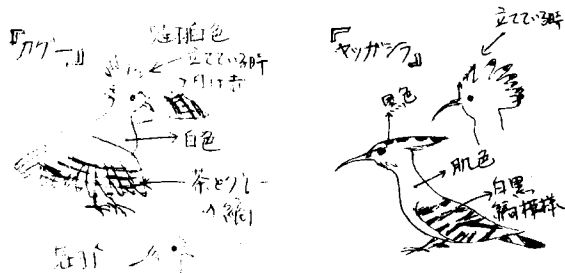 『カグー』
冠羽白色
立てている時
白色
茶とグレー
の縞
冠羽
『ヤツガシラ』
立てている時
黒色
肌色
白黒
縞模様